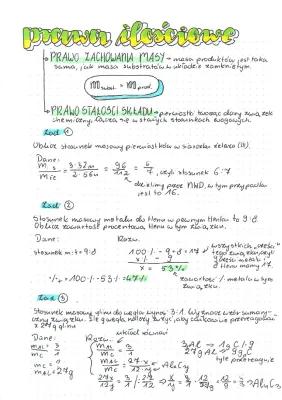 prawa ilościowe
PRAWO ZACHOWANIA MASY → masa produktów jest taka
sama, jak masa substratów w układzie zamkniętym.
m subst. = m prod.
PRAWO STAŁOŚCI SKŁADU → pierwiastki tworząc dany związek
chemiczny łączą się w stałych stosunkach wagowych.
Zad 1
Oblicz stosunek masowy pierwiastków w siarczku żelaza (III).
Dane:
mS / mFe = 3·32u / 2·56u = 96 / 112 = 6 / 7, czyli stosunek 6:7
dzielimy przez NWD, w tym przypadku
jest to 16.
Zad 2
Stosunek masowy metalu do tlenu w pewnym tlenku to 9:8.
Oblicz zawartość procentową tlenu w tym związku.
Dane: Rozw.
stosunek m:t = 9:8
100% - 9+8=17
x% - 9
x = 53%
wszystkich „części”
tego związku, czyli
części metalu i
tlenu mamy 17.
%t = 100% - 53% = 47%
zawartość % metalu w tym
związku.
Zad 3
Stosunek masowy glinu do węgla wynosi 3:1. Wyznacz wzór sumary-
czny związku. Ile g węgla należy zużyć, aby całkowicie przereagował
z 27g glinu
Dane: Rozw.:
układ równań
mAl / mC = 3 / 1
mAl = 27g
3Al → 1g C / ·9
27g Al → 9g C
tyle przereaguje